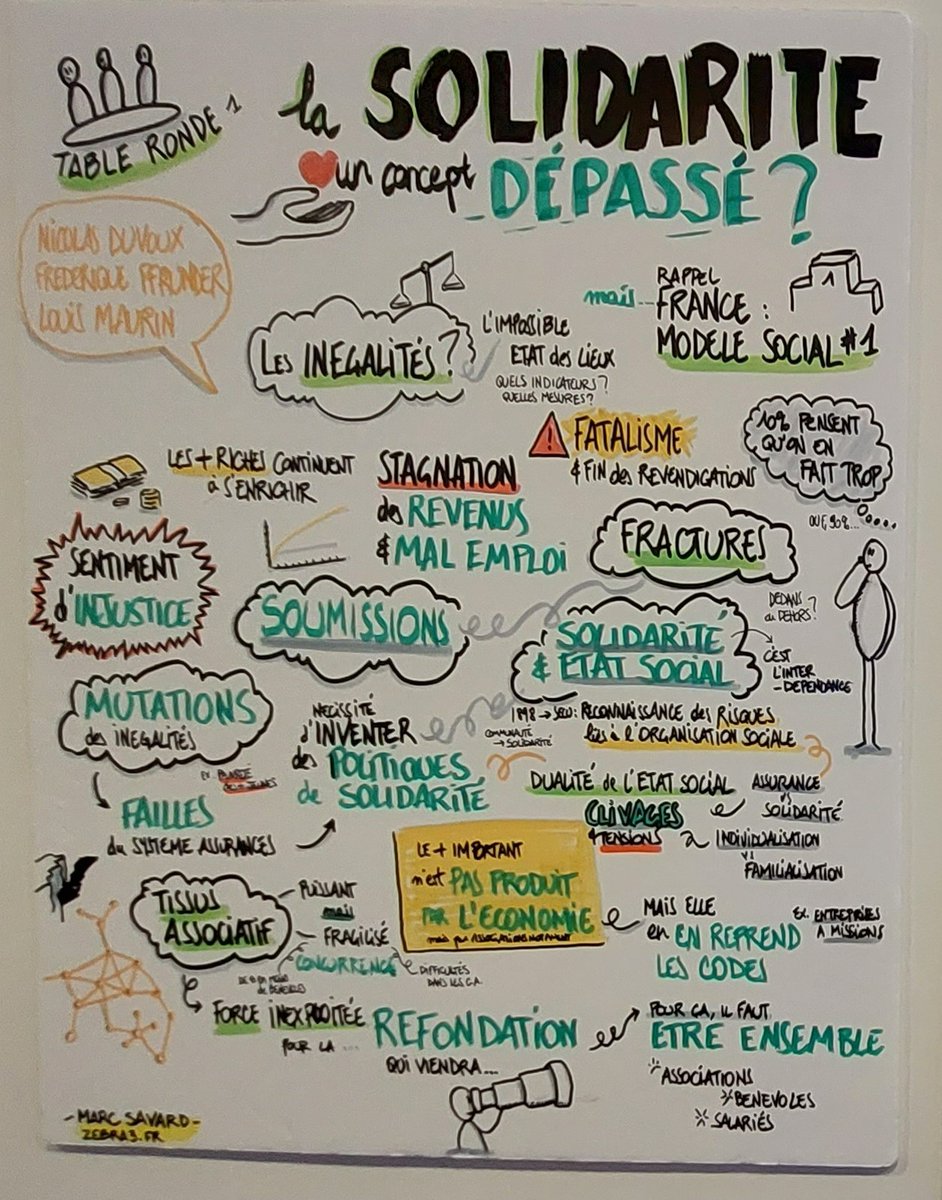 TABLE RONDE 1
la SOLIDARITE
un concept DÉPASSÉ ?
NICOLAS DUVOUX
FREDERIQUE PFRUNDER
LOUIS MAURIN
LES INEGALITÉS ?
L'IMPOSSIBLE
ETAT des LIEUX
QUELS INDICATEURS ?
QUELLES MESURES ?
mais...
RAPPEL
FRANCE :
MODELE SOCIAL #1
1
LES + RICHES CONTINUENT
à S'ENRICHIR
STAGNATION
des REVENUS
& MAL EMPLOI
FATALISME
& FIN des REVENDICATIONS
10% PENSENT
QU'ON EN
FAIT TROP
OUF, 90%...
SENTIMENT
d'INJUSTICE
SOUMISSIONS
FRACTURES
DEDANS
ou DEHORS ?
SOLIDARITÉ
& ETAT SOCIAL
C'EST
L'INTER
-DEPENDANCE
MUTATIONS
des INEGALITÉS
FAILLES
du SYSTEME ASSURANCES
NECESSITÉ
d'INVENTER
des POLITIQUES
de SOLIDARITÉ
1898 → SECU : RECONNAISSANCE des RISQUES
liés à l'ORGANISATION SOCIALE
COMMUNAUTÉ
→ SOLIDARITÉ
DUALITÉ de L'ETAT SOCIAL
ASSURANCE
VS
SOLIDARITÉ
CLIVAGES
& TENSIONS
INDIVIDUALISATION
VS
FAMILIALISATION
LE + IMPORTANT
n'est PAS PRODUIT
PAR L'ECONOMIE
mais par ASSOCIATIONS NOTAMMENT
MAIS ELLE
en EN REPREND
LES CODES
EX. ENTREPRISES
A MISSIONS
TISSUS
ASSOCIATIF
PUISSANT
mais
FRAGILISÉ
CONCURRENCE
DE BENEVOLES
DIFFICULTÉS
DANS LES C.A.
FORCE INEXPLOITÉE
POUR LA ...
REFONDATION
QUI VIENDRA...
POUR ÇA, IL FAUT
ETRE ENSEMBLE
ASSOCIATIONS
BENEVOLES
SALARIÉS
- MARC SAVARD -
ZEBRA3.FR